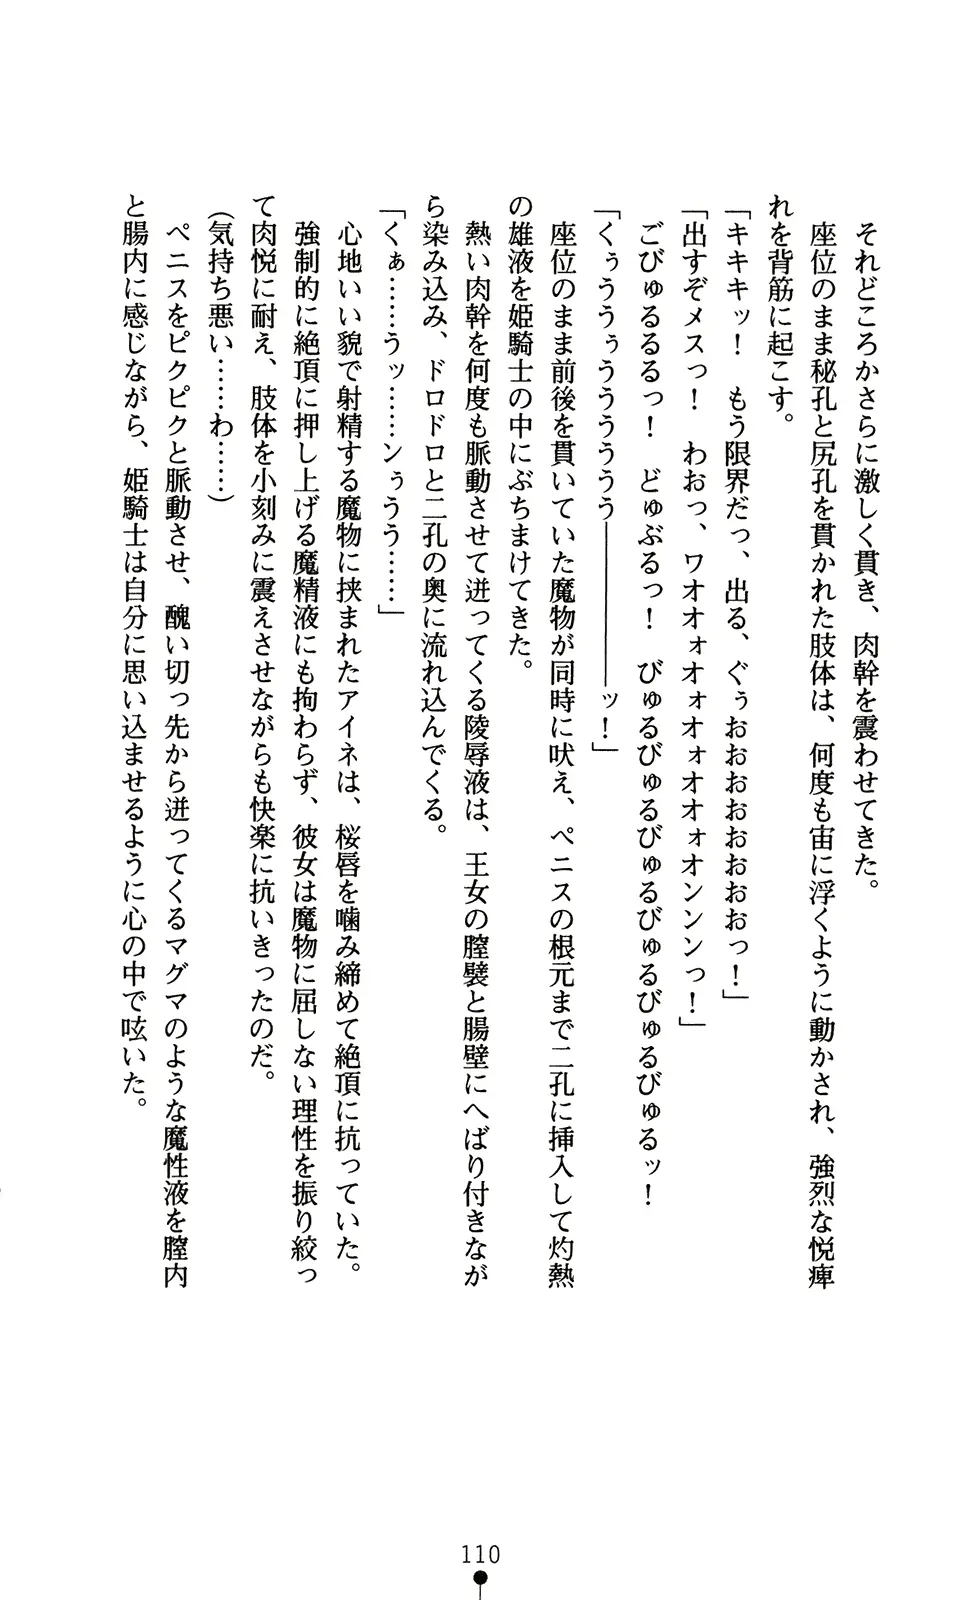 それどころかさらに激しく貫き、肉幹を震わせてきた。
座位のまま秘孔と尻孔を貫かれた肢体は、何度も宙に浮くように動かされ、強烈な悦痺
れを背筋に起こす。
「キキキッ！　もう限界だっ、出る、ぐぅおおおおおおおっ！」
「出すぞメスっ！　わおっ、ワオオォオォオォオオォオンンンっ！」
ごびゅるるるっ！　どゅぶるっ！　びゅるびゅるびゅるびゅるびゅるびゅるッ！
「くぅううぅううううう――――――ッ！」
座位のまま前後を貫いていた魔物が同時に吠え、ペニスの根元まで二孔に挿入して灼熱
の雄液を姫騎士の中にぶちまけてきた。
熱い肉幹を何度も脈動させて迸ってくる陵辱液は、王女の膣襞と腸壁にへばり付きなが
ら染み込み、ドロドロと二孔の奥に流れ込んでくる。
「くぁ……うッ……ンぅうう……」
心地いい貌で射精する魔物に挟まれたアイネは、桜唇を噛み締めて絶頂に抗っていた。
強制的に絶頂に押し上げる魔精液にも拘わらず、彼女は魔物に屈しない理性を振り絞っ
て肉悦に耐え、肢体を小刻みに震えさせながらも快楽に抗いきったのだ。
(気持ち悪い……わ……)
ペニスをピクピクと脈動させ、醜い切っ先から迸ってくるマグマのような魔性液を膣内
と腸内に感じながら、姫騎士は自分に思い込ませるように心の中で呟いた。
110